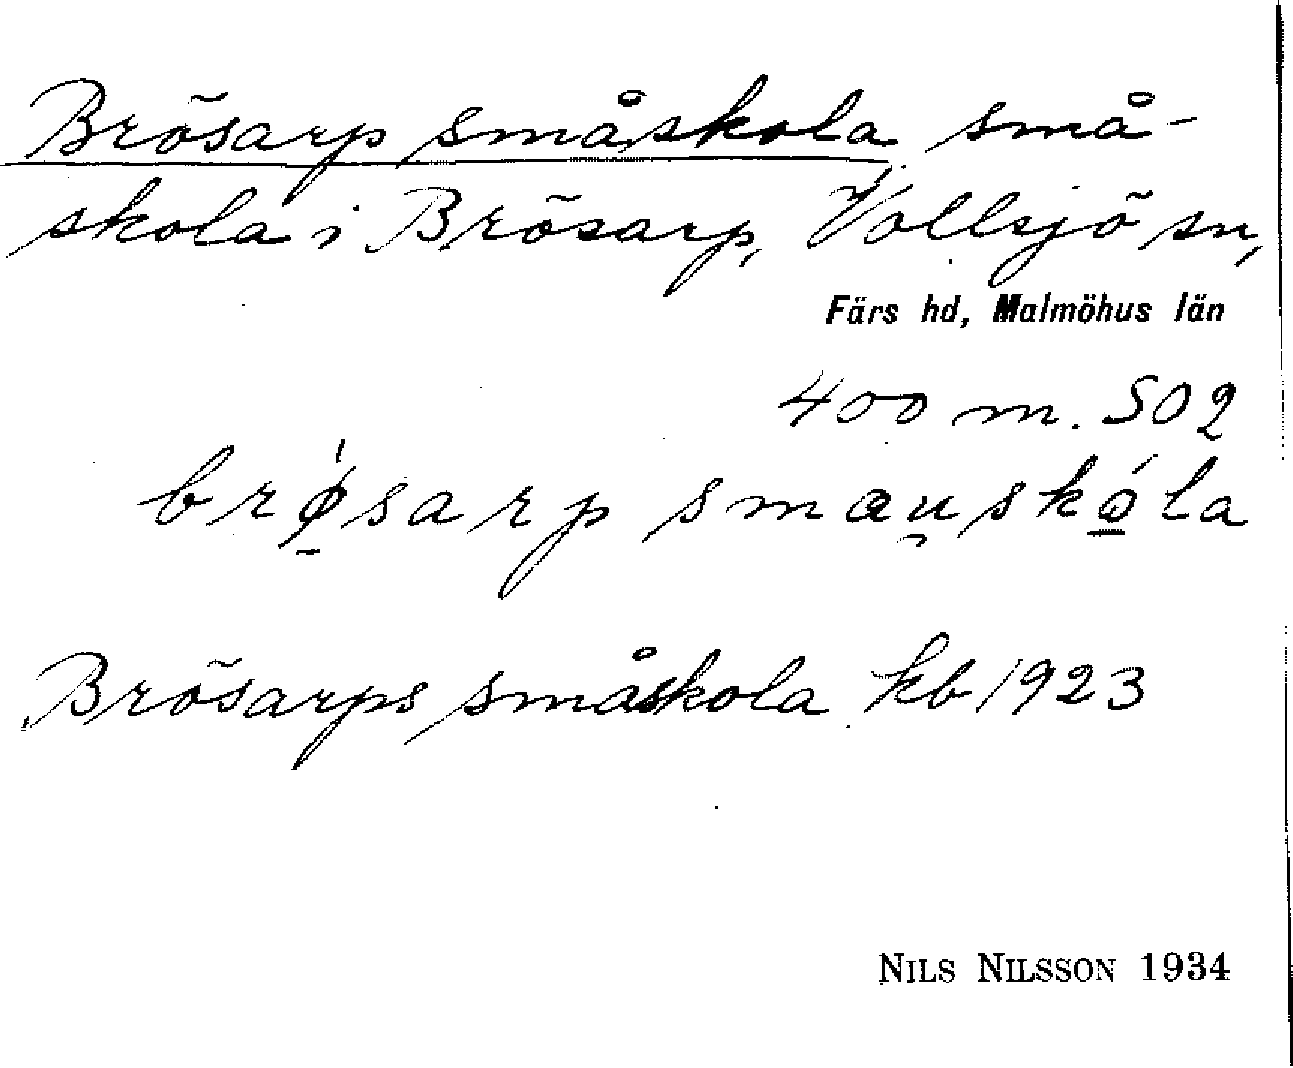 Brösarp småskola små-
skola i Brösarp, Vollsjö sn,
Färs hd, Malmöhus län
400 m. SO2
brǿ̠sarp smau̯skǫ́la
Brösarps småskola kb 1923
NILS NILSSON 1934